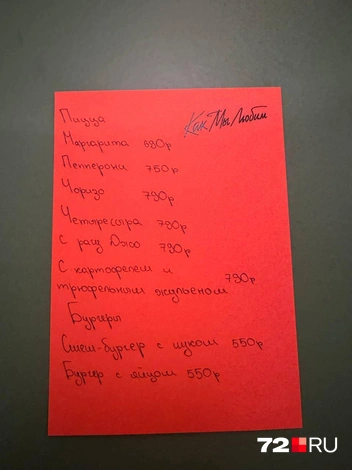 Как Мы Любим
Пицца
Маргарита 690р
Пепперони 750р
Чоризо 790р
Четыре сыра 790р
С рагу 790р
С картофелем и
трюфельным жульеном 790р
Бургеры
Смеш-бургер с луком 550р
Бургер с яйцом 550р
72.RU